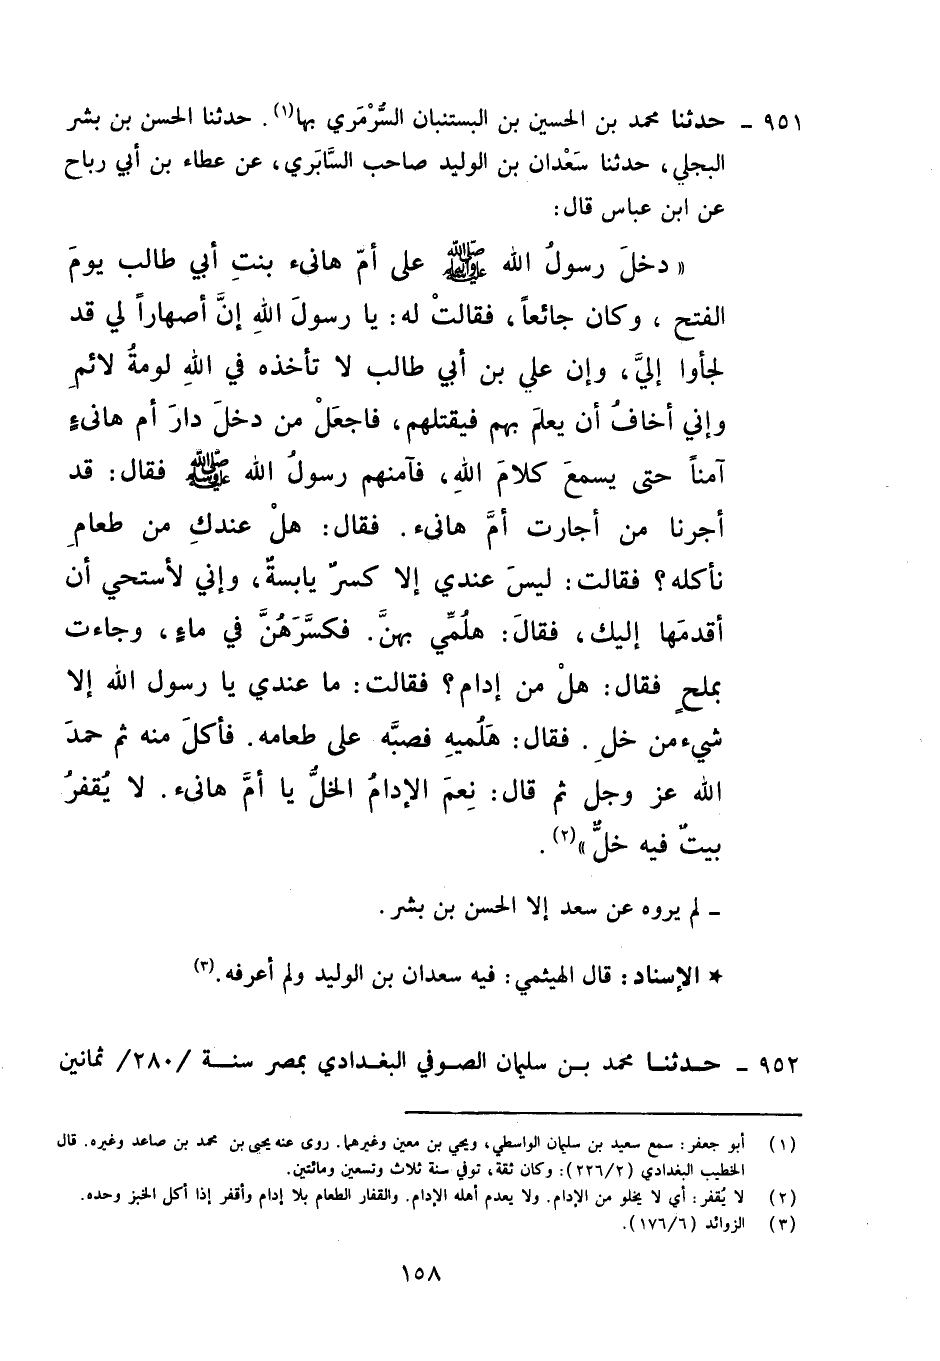 ٩٥١ - حدثنا محمد بن الحسين بن البستنبان السُّرْمَري بها(١). حدثنا الحسن بن بشر
البجلي، حدثنا سَعْدان بن الوليد صاحب السَّابَري، عن عطاء بن أبي رباح
عن ابن عباس قال:
« دخلَ رسولُ الله ﷺ على أمّ هانىء بنتِ أبي طالب يومَ
الفتح ، وكان جائعاً، فقالتْ له: يا رسولَ اللهِ إنَّ أصهاراً لي قد
لجأوا إليَّ، وإن علي بن أبي طالب لا تأخذه في اللهِ لومةُ لائمٍ
وإني أخافُ أن يعلمَ بهم فيقتلهم، فاجعَلْ من دخلَ دارَ أم هانىءٍ
آمناً حتى يسمعَ كلامَ اللهِ، فآمنهم رسولُ الله ﷺ فقال: قد
أجرنا من أجارت أمَّ هانىء. فقال: هلْ عندكِ من طعامٍ
نأكله؟ فقالت: ليسَ عندي إلا كسرٌ يابسةٌ، وإني لأستحي أن
أقدمَها إليك، فقالَ: هلُمِّي بهنَّ. فكسَّرَهُنَّ في ماءٍ، وجاءت
بملحٍ فقال: هلْ من إدام؟ فقالت: ما عندي يا رسول الله إلا
شيء من خلٍ. فقال: هَلُميهِ فصبَّه على طعامه. فأكلَ منه ثم حمدَ
الله عز وجل ثم قال: نِعمَ الإدامُ الخلُّ يا أمَّ هانىء. لا يُقفرُ
بيتٌ فيه خلٌّ»(٢).
- لم يروه عن سعد إلا الحسن بن بشر.
* الإسناد: قال الهيثمي: فيه سعدان بن الوليد ولم أعرفه.(٣)
٩٥٢ - حدثنا محمد بن سليمان الصوفي البغدادي بمصر سنة /٢٨٠/ ثمانين
(١) أبو جعفر: سمع سعيد بن سليمان الواسطي، ويحي بن معين وغيرهما. روى عنه يحيى بن محمد بن صاعد وغيره. قال
الخطيب البغدادي (٢٢٦/٢): وكان ثقة، توفي سنة ثلاث وتسعين ومائتين.
(٢) لا يُقفر: أي لا يخلو من الإدام. ولا يعدم أهله الإدام. والقفار الطعام بلا إدام وأقفر إذا أكل الخبز وحده.
(٣) الزوائد (١٧٦/٦).
١٥٨